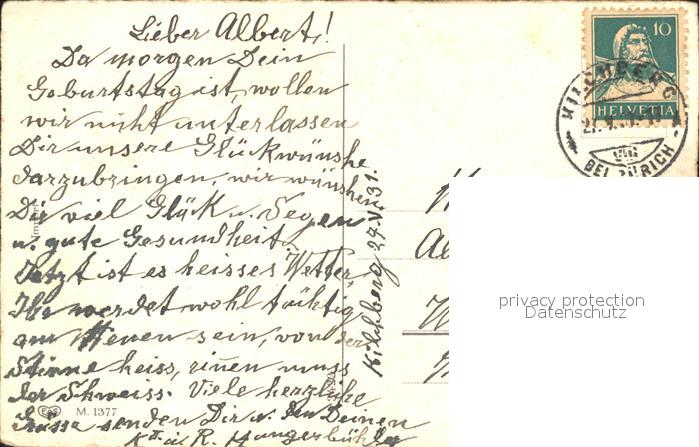 Lieber Albert!
Da morgen Dein
Geburtstag ist, wollen
wir nicht unterlassen
Dir unsere Glückwünshe
darzubringen, wir wünshen
Dir viel Glück u. Segen
u. gute Gesundheit,
Jetzt ist es heisses Wetter,
Ihr werdet wohl tüchtig
am Heuen sein, von der
heiss, rinen muss
der Schweiss. Viele herzliche
Grüsse senden Dir u. den Deinen
R. Hungerbühler
Kilchberg 27. VI. 31.
M. 1377
10
HELVETIA
KILCHBERG
VIII
BEI ZÜRICH
privacy protection
Datenschutz